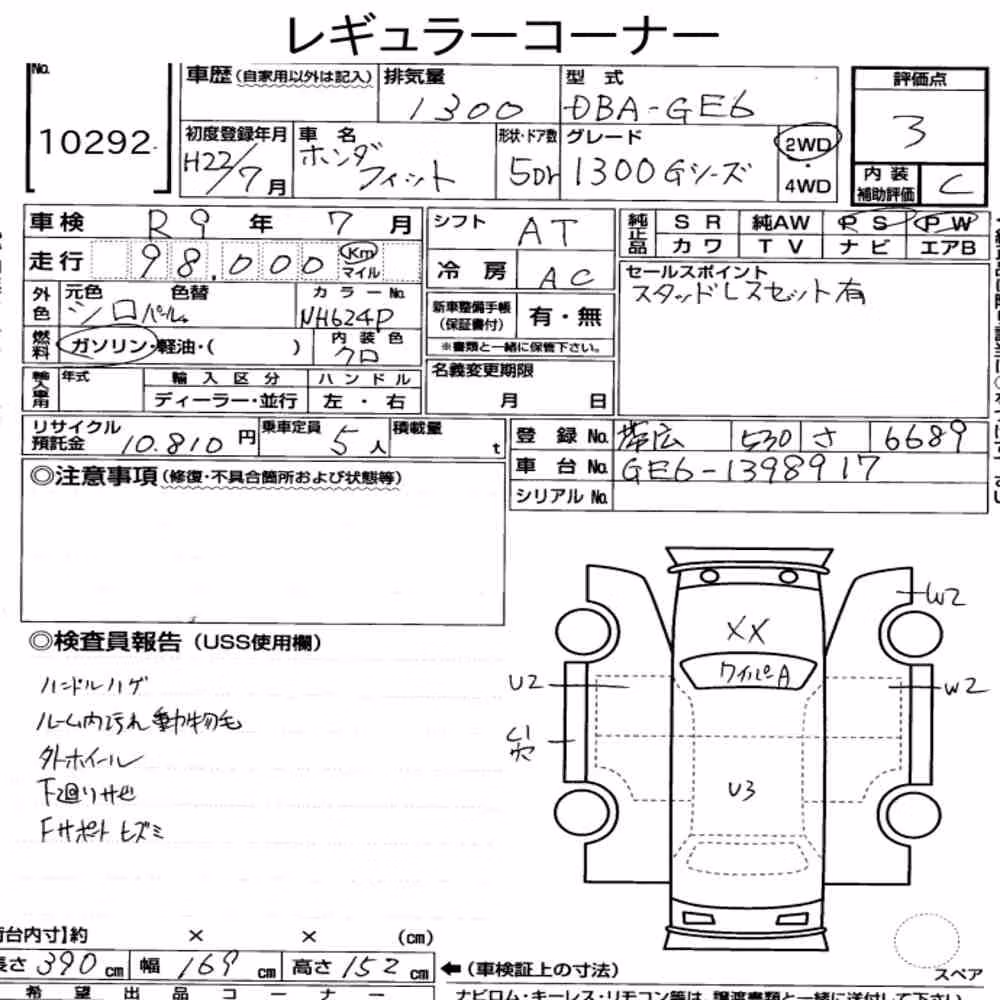 レギュラーコーナー
No. 10292
車歴(自家用以外は記入) 排気量 1300 型式 DBA-GE6 評価点 3
初度登録年月 H22/7月 車名 ホンダ フィット 形状・ドア数 5Dr グレード 1300Gシーズ 2WD・4WD
内装補助評価 C
車検 R9年 7月 シフト AT 純正品 SR 純AW PS PW
カワ TV ナビ エアB
走行 98,000 Km マイル 冷房 AC セールスポイント
スタッドレスセット有
外色 元色 色替 カラーNo.
シロパール NH624P 新車整備手帳(保証書付) 有・無
燃料 ガソリン・軽油・( ) 内装色 クロ ※書類と一緒に保管下さい。
輸入車用 年式 輸入区分 ハンドル 名義変更期限
ディーラー・並行 左・右 月 日
リサイクル預託金 10.810円 乗車定員 5人 積載量 t 登録No. 帯広 530 さ 6689
車台No. GE6-1398917
シリアルNo.
◎注意事項(修復・不具合箇所および状態等)
◎検査員報告(USS使用欄)
ハンドルハゲ
ルーム内汚れ 動物毛
外ホイール
下廻りサビ
Fサポート ヒズミ
W2
XX
ワイパーA
U2
W2
C1
穴
U3
台内寸】約 × × (cm)
長さ 390cm 幅 169cm 高さ 152cm ←(車検証上の寸法)
スペア
希望出品コーナー
ナビロム・キーレス・リモコン等は、譲渡書類と一緒に送付して下さい。